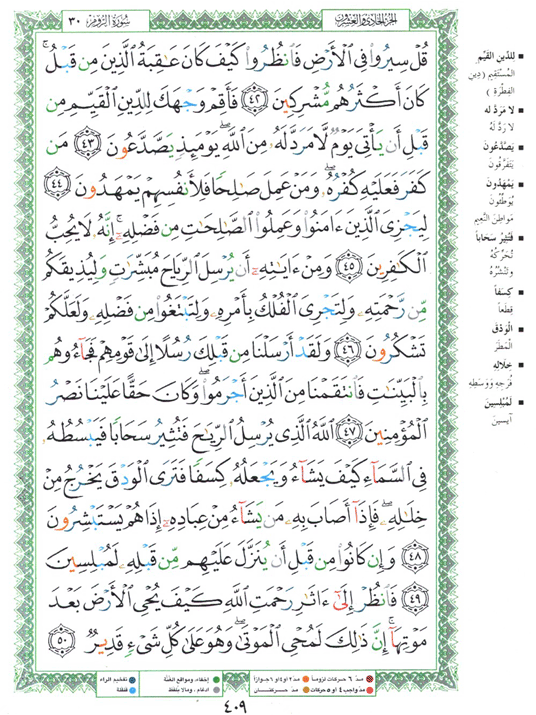 الجزء الحادي والعشرون
سورة الروم ٣٠
قُلْ سِيرُوا۟ فِى ٱلْأَرْضِ فَٱنظُرُوا۟ كَيْفَ كَانَ عَـٰقِبَةُ ٱلَّذِينَ مِن قَبْلُ ۚ
كَانَ أَكْثَرُهُم مُّشْرِكِينَ ٤٢ فَأَقِمْ وَجْهَكَ لِلدِّينِ ٱلْقَيِّمِ مِن
قَبْلِ أَن يَأْتِىَ يَوْمٌ لَّا مَرَدَّ لَهُۥ مِنَ ٱللَّهِ ۖ يَوْمَئِذٍ يَصَّدَّعُونَ ٤٣ مَن
كَفَرَ فَعَلَيْهِ كُفْرُهُۥ ۖ وَمَنْ عَمِلَ صَـٰلِحًا فَلِأَنفُسِهِمْ يَمْهَدُونَ ٤٤
لِيَجْزِىَ ٱلَّذِينَ ءَامَنُوا۟ وَعَمِلُوا۟ ٱلصَّـٰلِحَـٰتِ مِن فَضْلِهِۦٓ ۚ إِنَّهُۥ لَا يُحِبُّ
ٱلْكَـٰفِرِينَ ٤٥ وَمِنْ ءَايَـٰتِهِۦٓ أَن يُرْسِلَ ٱلرِّيَاحَ مُبَشِّرَٰتٍ وَلِيُذِيقَكُم
مِّن رَّحْمَتِهِۦ وَلِتَجْرِىَ ٱلْفُلْكُ بِأَمْرِهِۦ وَلِتَبْتَغُوا۟ مِن فَضْلِهِۦ وَلَعَلَّكُمْ
تَشْكُرُونَ ٤٦ وَلَقَدْ أَرْسَلْنَا مِن قَبْلِكَ رُسُلًا إِلَىٰ قَوْمِهِمْ فَجَآءُوهُم
بِٱلْبَيِّنَـٰتِ فَٱنتَقَمْنَا مِنَ ٱلَّذِينَ أَجْرَمُوا۟ ۖ وَكَانَ حَقًّا عَلَيْنَا نَصْرُ
ٱلْمُؤْمِنِينَ ٤٧ ٱللَّهُ ٱلَّذِى يُرْسِلُ ٱلرِّيَـٰحَ فَتُثِيرُ سَحَابًا فَيَبْسُطُهُۥ
فِى ٱلسَّمَآءِ كَيْفَ يَشَآءُ وَيَجْعَلُهُۥ كِسَفًا فَتَرَى ٱلْوَدْقَ يَخْرُجُ مِنْ
خِلَـٰلِهِۦ ۖ فَإِذَآ أَصَابَ بِهِۦ مَن يَشَآءُ مِنْ عِبَادِهِۦٓ إِذَا هُمْ يَسْتَبْشِرُونَ
٤٨ وَإِن كَانُوا۟ مِن قَبْلِ أَن يُنَزَّلَ عَلَيْهِم مِّن قَبْلِهِۦ لَمُبْلِسِينَ
٤٩ فَٱنظُرْ إِلَىٰٓ ءَاثَـٰرِ رَحْمَتِ ٱللَّهِ كَيْفَ يُحْىِ ٱلْأَرْضَ بَعْدَ
مَوْتِهَآ ۚ إِنَّ ذَٰلِكَ لَمُحْىِ ٱلْمَوْتَىٰ ۖ وَهُوَ عَلَىٰ كُلِّ شَىْءٍ قَدِيرٌ ٥٠
▪ للدين القيم
المستقيم (دين
الفطرة)
▪ لا مرد له
لا رد له
▪ يصدعون
يتفرقون
▪ يمهدون
يوطئون
مواطن النعيم
▪ فتثير سحابا
تحركه
وتنشره
▪ كسفا
قطعا
▪ الودق
المطر
▪ خلاله
فرجه ووسطه
▪ لمبلسين
آيسين
مد ٦ حركات لزوما
مد ٢ أو ٤ أو ٦ جوازا
إخفاء، ومواقع الغنة
تفخيم الراء
مد واجب ٤ أو ٥ حركات
مد حركتان
إدغام، وما لا يلفظ
قلقلة
٤٠٩